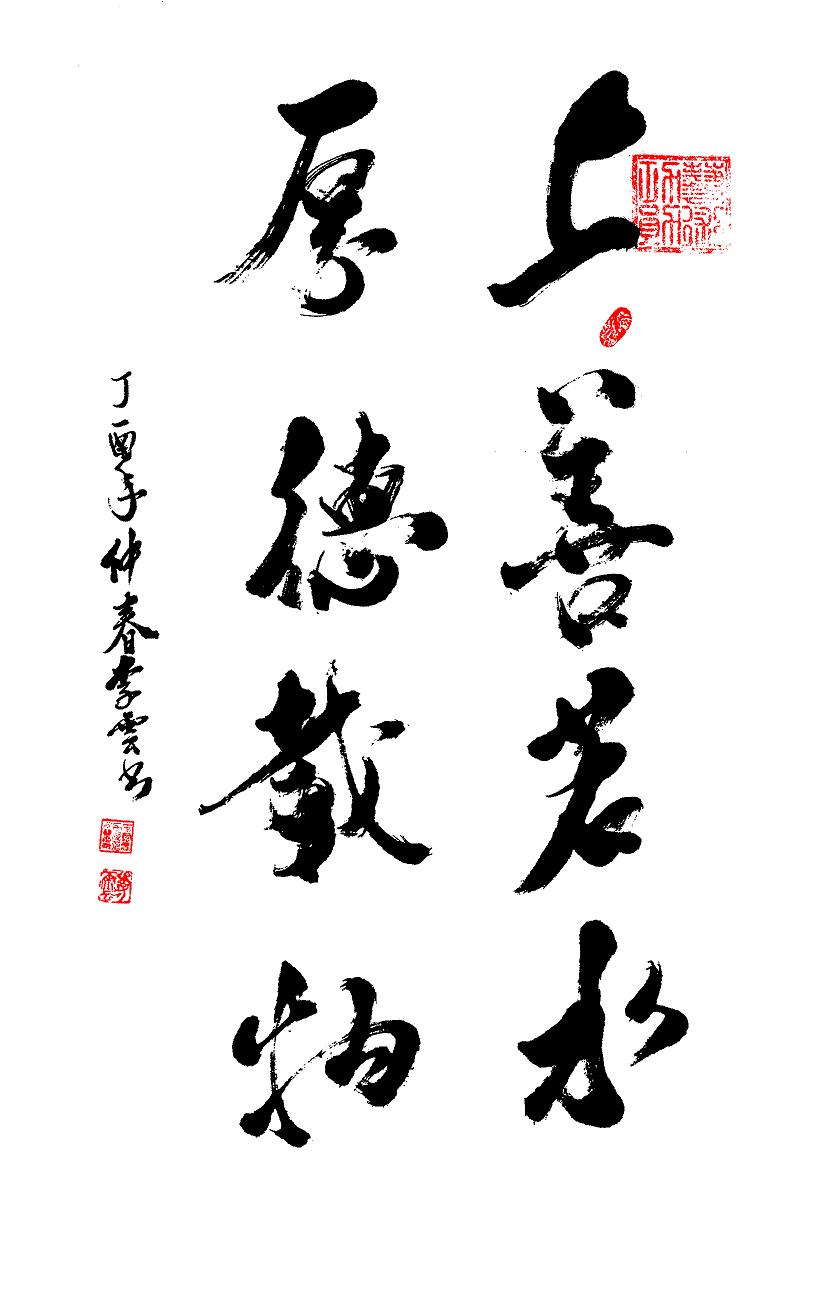 上善若水
厚德載物
丁酉年仲春李雲书